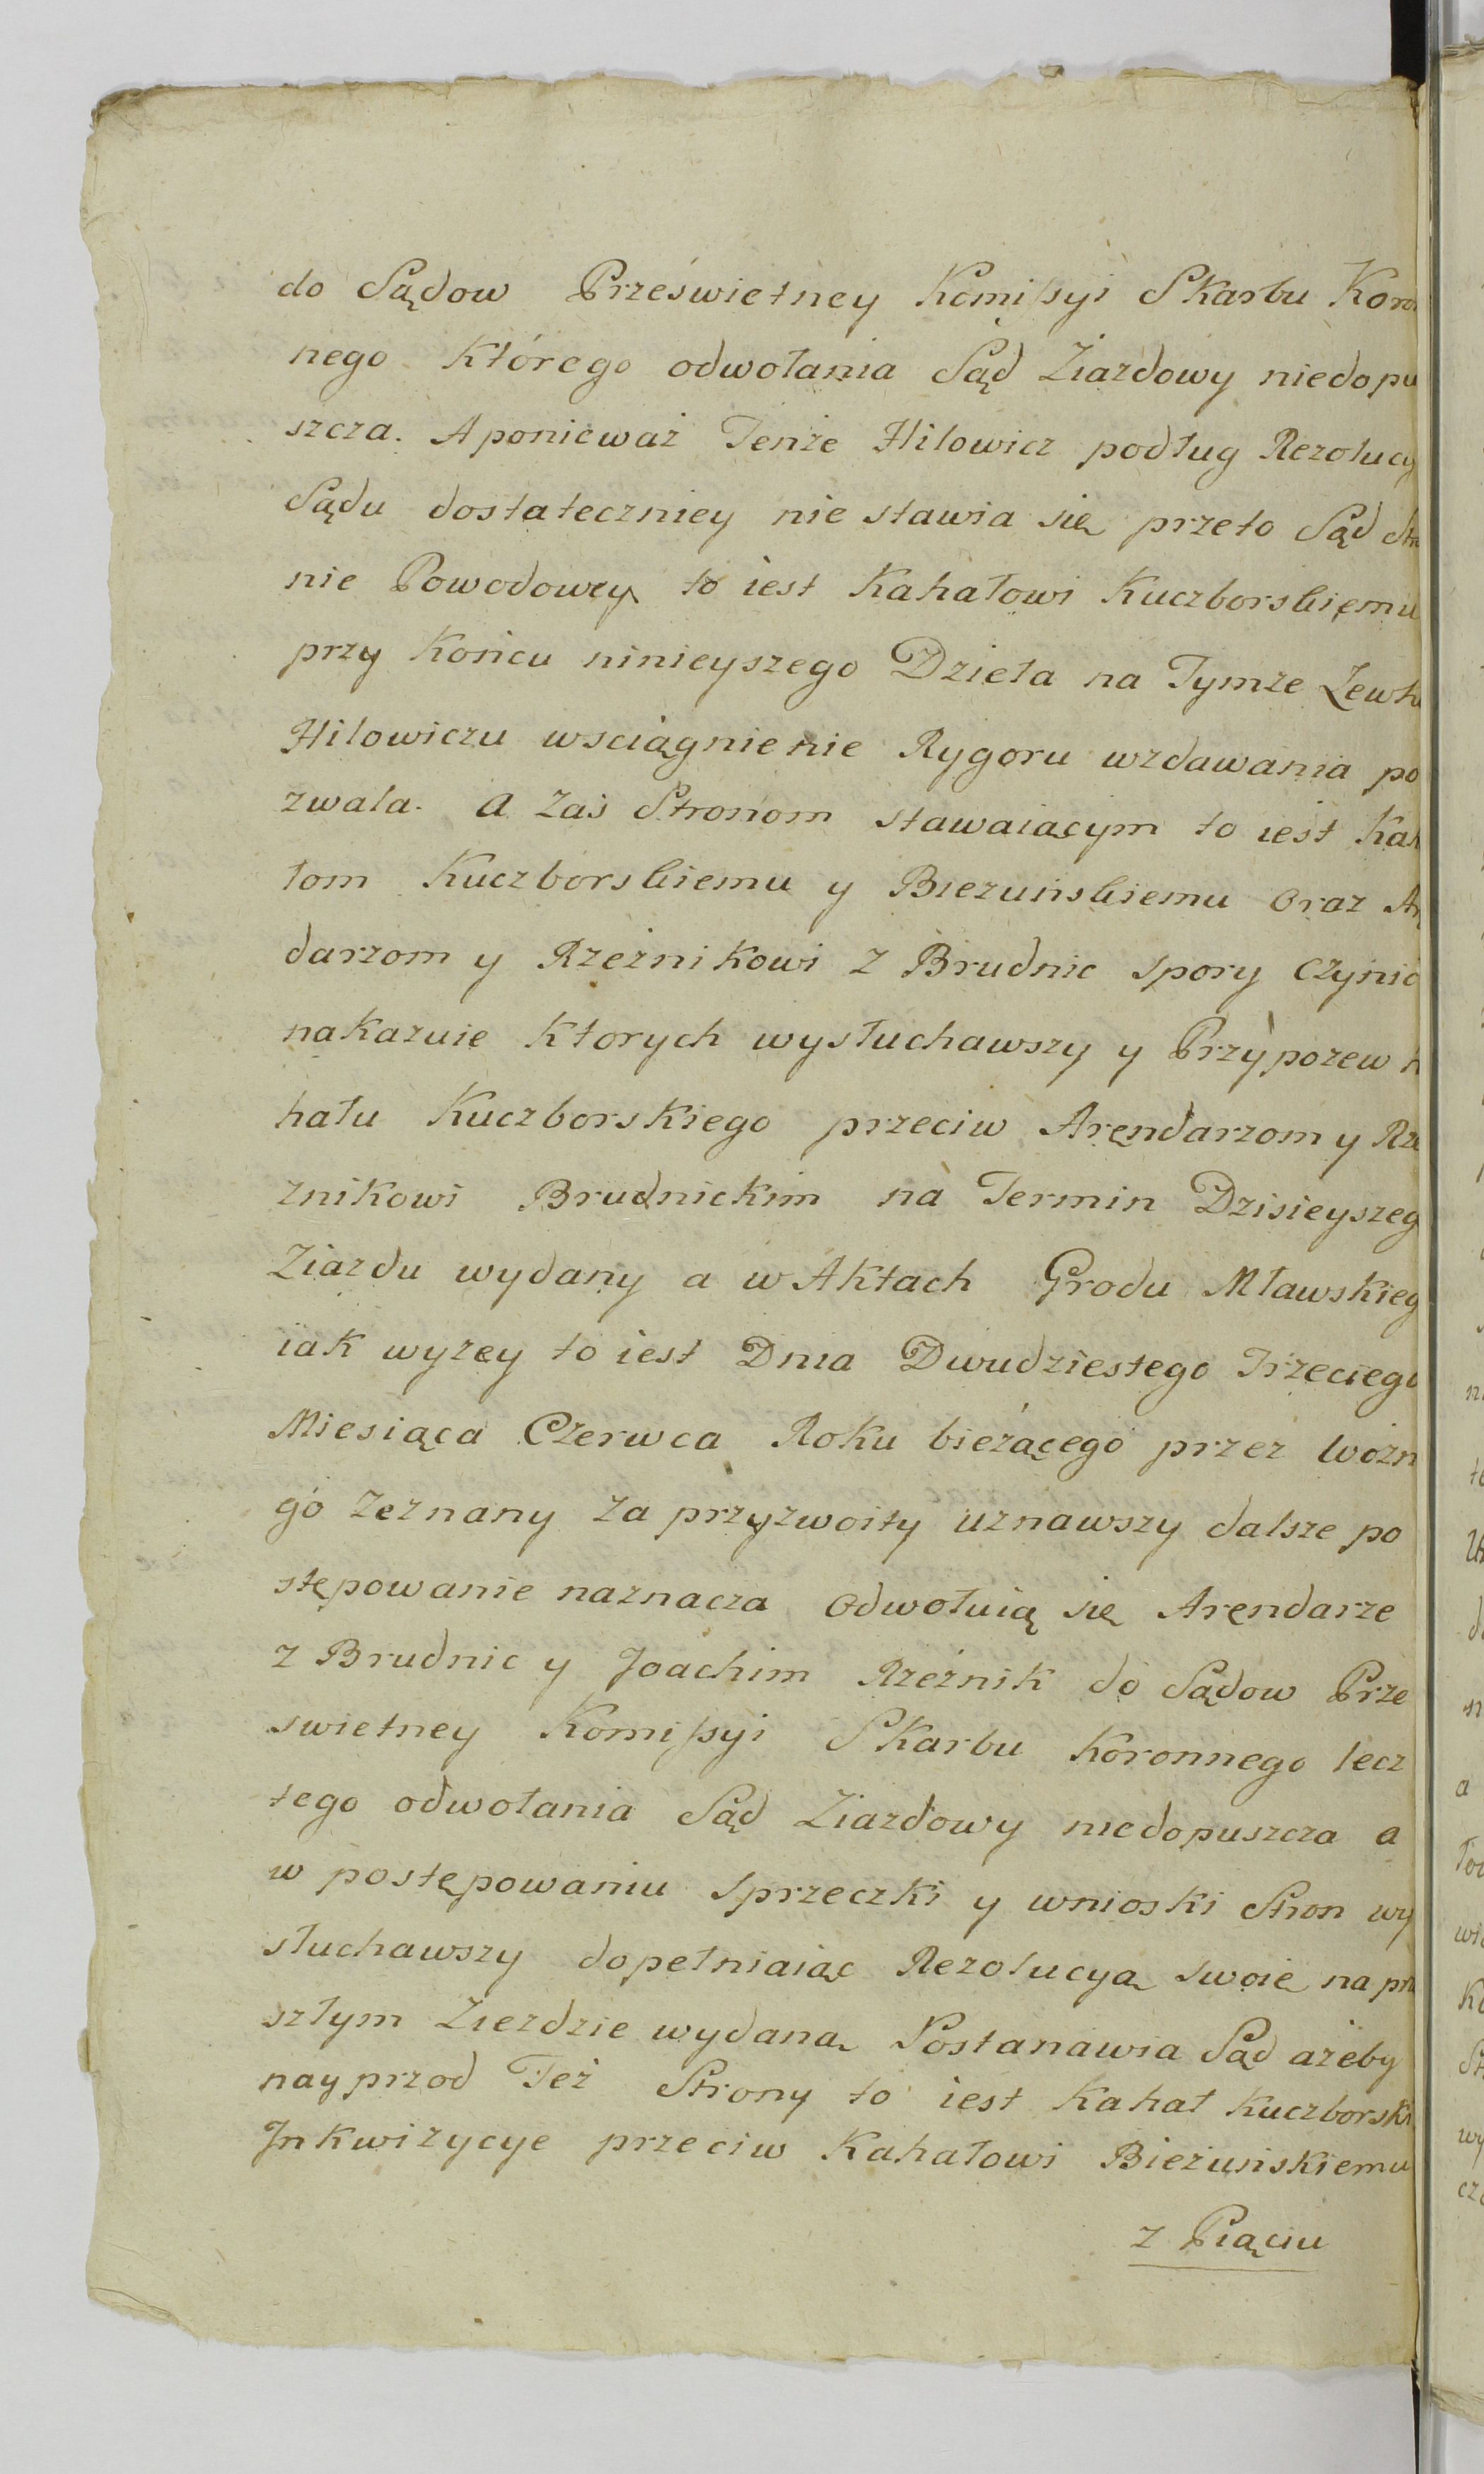 do Sądow Prześwietney Komissyi Skarbu Koro
nego którego odwołania Sąd Ziazdowy niedopu
szcza. Aponieważ Tenże Hilowicz podług Rezolucy
Sądu dostateczniey nie stawia się przeto Sąd Stro
nie Powodowey to iest Kahałowi Kuczborskiemu
przy końcu ninieyszego Dzieła na Tymże Lewku
Hilowiczu wsciągnienie Rygoru wzdawania po
zwala. a zaś Stronom stawaiącym to iest Kah
łom Kuczborskiemu y Bieżuńskiemu oraz Arę
darzom y Rzeźnikowi z Brudnic spory czynić
nakazuie których wysłuchawszy y Przypozew
hału Kuczborskiego przeciw Arendarzom y Rze
znikowi Brudnickim na Termin Dzisieyszeg
Ziazdu wydany a w Aktach Grodu Mławskieg
iak wyżey to iest Dnia Dwudziestego Trzeciego
Miesiąca Czerwca Roku bieżącego przez woźn
go zeznany za przyzwoity uznawszy dalsze po
stępowanie naznacza Odwołuią się Arendarze
z Brudnic y Joachim Rzeźnik do Sądow Prze
swietney Komissyi Skarbu Koronnego lecz
tego odwołania Sąd Ziazdowy niedopuszcza a
w postępowaniu sprzeczki y wnioski Stron wy
słuchawszy dopełniaiąc Rezolucyą swoię na prze
szłym Zieździe wydaną Postanawia Sąd ażeby
nayprzod Też Strony to iest Kahał Kuczborski
Inkwizycye przeciw Kahałowi Bieżuńskiemu
z Piąciu